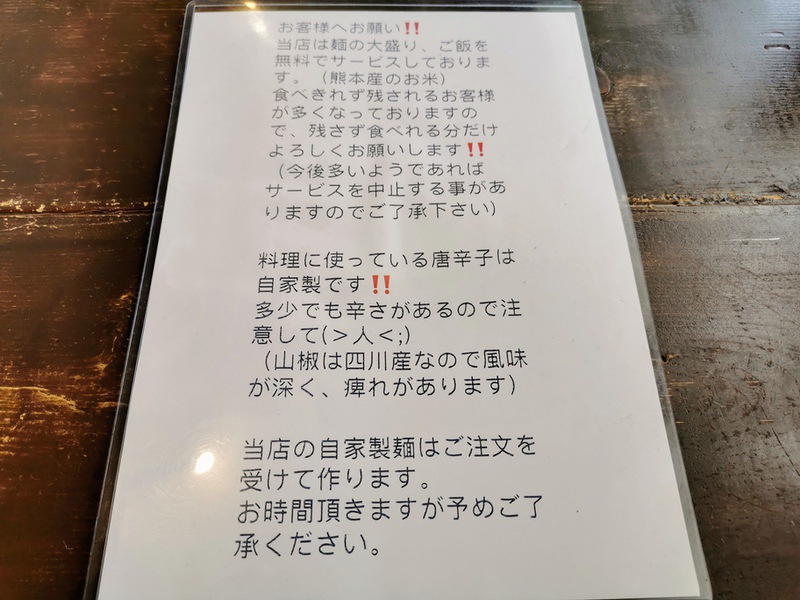 お客様へお願い‼️
当店は麺の大盛り、ご飯を
無料でサービスしておりま
す。（熊本産のお米）
食べきれず残されるお客様
が多くなっておりますの
で、残さず食べれる分だけ
よろしくお願いします‼️
（今後多いようであれば
サービスを中止する事があ
りますのでご了承下さい）
料理に使っている唐辛子は
自家製です‼️
多少でも辛さがあるので注
意して(＞人＜;)
（山椒は四川産なので風味
が深く、痺れがあります）
当店の自家製麺はご注文を
受けて作ります。
お時間頂きますが予めご了
承ください。